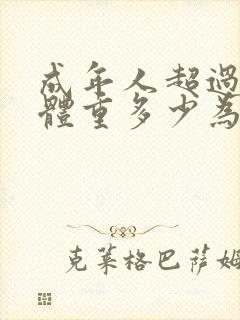 成年人超過
體重多少為
克萊格巴薩姆